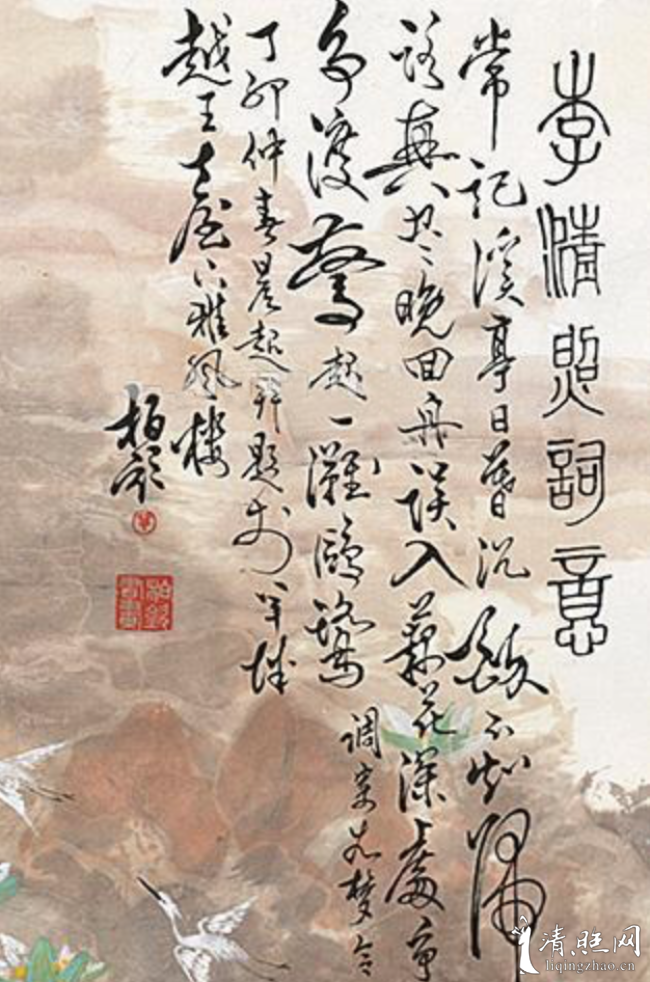 李清照詞意
常記溪亭日暮沉醉不知歸
路興盡晚回舟誤入藕花深處爭
渡爭渡驚起一灘鷗鷺
调寄如夢令
丁卯仲春晨起并題於羊城
越王下雅風樓
清照网
liqingzhao.cn